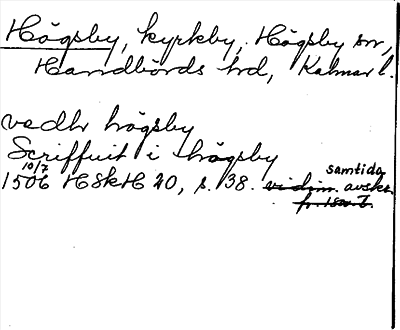 Högsby, kyrkby, Högsby sn,
Handbörds hd, Kalmar l.
vedhr högsby
Scriffuit i högsby
10/7 samtida
1506 HSkH 20, s. 38. vidim. avskr.